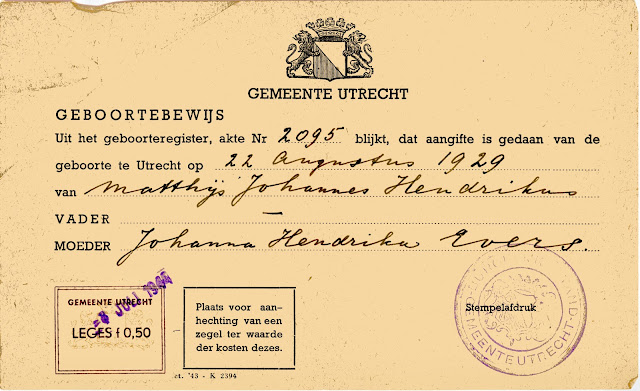 GEMEENTE UTRECHT
GEBOORTEBEWIJS
Uit het geboorteregister, akte Nr 2095 blijkt, dat aangifte is gedaan van de
geboorte te Utrecht op 22 Augustus 1929
van Matthijs Johannes Hendrikus
VADER —
MOEDER Johanna Hendrika Evers.
GEMEENTE UTRECHT
JULI
LEGES f 0,50
Plaats voor aan-
hechting van een
zegel ter waarde
der kosten dezes.
Stempelafdruk
GEMEENTE UTRECHT
ct. '43 - K 2394